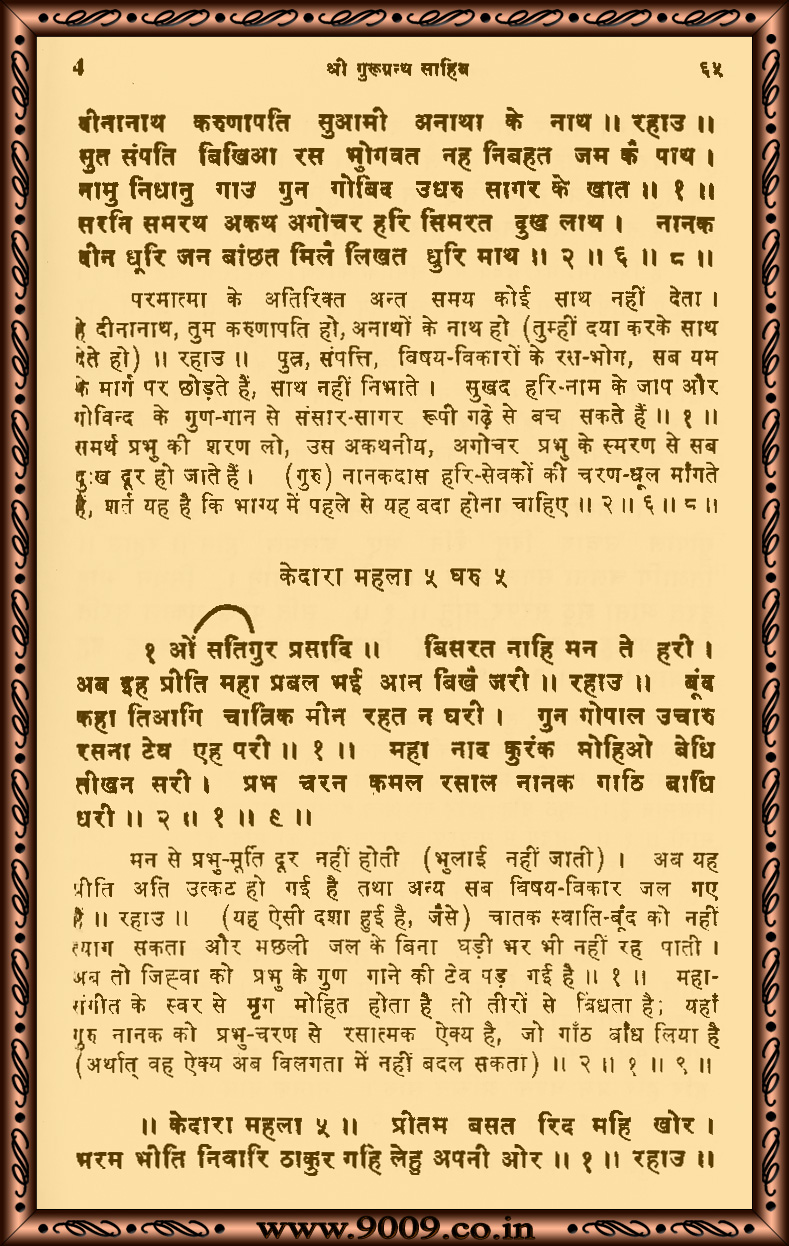 4 श्री गुरूग्रन्थ साहिब ६५
दीनानाथ करुणापति सुआमी अनाथा के नाथ ॥ रहाउ ॥
सुत संपति बिखिआ रस भोगवत नह निबहत जम कै पाथ ।
नामु निधानु गाउ गुन गोबिंद उधरु सागर के खात ॥ १ ॥
सरनि समरथ अकथ अगोचर हरि सिमरत दुख लाथ । नानक
दीन धूरि जन बांछत मिलै लिखत धुरि माथ ॥ २ ॥ ६ ॥ ८ ॥
परमात्मा के अतिरिक्त अन्त समय कोई साथ नहीं देता ।
हे दीनानाथ, तुम करुणापति हो, अनाथों के नाथ हो (तुम्हीं दया करके साथ
देते हो) ॥ रहाउ ॥ पुत्र, संपत्ति, विषय-विकारों के रस-भोग, सब यम
के मार्ग पर छोड़ते हैं, साथ नहीं निभाते । सुखद हरि-नाम के जाप और
गोविन्द के गुण-गान से संसार-सागर रूपी गढ़े से बच सकते हैं ॥ १ ॥
समर्थ प्रभु की शरण लो, उस अकथनीय, अगोचर प्रभु के स्मरण से सब
दुःख दूर हो जाते हैं । (गुरु) नानकदास हरि-सेवकों की चरण-धूल माँगते
हैं, शर्त यह है कि भाग्य में पहले से यह बदा होना चाहिए ॥ २ ॥ ६ ॥ ८ ॥
केदारा महला ५ घरु ५
१ ओं सतिगुर प्रसादि ॥ बिसरत नाहि मन ते हरी ।
अब इह प्रीति महा प्रबल भई आन बिखै जरी ॥ रहाउ ॥ बूंद
कहा तिआगि चात्रिक मीन रहत न घरी । गुन गोपाल उचारु
रसना टेव एह परी ॥ १ ॥ महा नाद कुरंक मोहिओ बेधि
तीखन सरी । प्रभ चरन कमल रसाल नानक गाठि बाधि
धरी ॥ २ ॥ १ ॥ ९ ॥
मन से प्रभु-मूर्ति दूर नहीं होती (भुलाई नहीं जाती) । अब यह
प्रीति अति उत्कट हो गई है तथा अन्य सब विषय-विकार जल गए
हैं ॥ रहाउ ॥ (यह ऐसी दशा हुई है, जैसे) चातक स्वाति-बूंद को नहीं
त्याग सकता और मछली जल के बिना घड़ी भर भी नहीं रह पाती ।
अब तो जिह्वा को प्रभु के गुण गाने की टेव पड़ गई है ॥ १ ॥ महा-
संगीत के स्वर से मृग मोहित होता है तो तीरों से बिंधता है; यहाँ
गुरु नानक को प्रभु-चरण से रसात्मक ऐक्य है, जो गाँठ बाँध लिया है
(अर्थात् वह ऐक्य अब विलगता में नहीं बदल सकता) ॥ २ ॥ १ ॥ ९ ॥
॥ केदारा महला ५ ॥ प्रीतम बसत रिद महि खोर ।
भरम भीति निवारि ठाकुर गहि लेहु अपनी ओर ॥ १ ॥ रहाउ ॥
www.9009.co.in